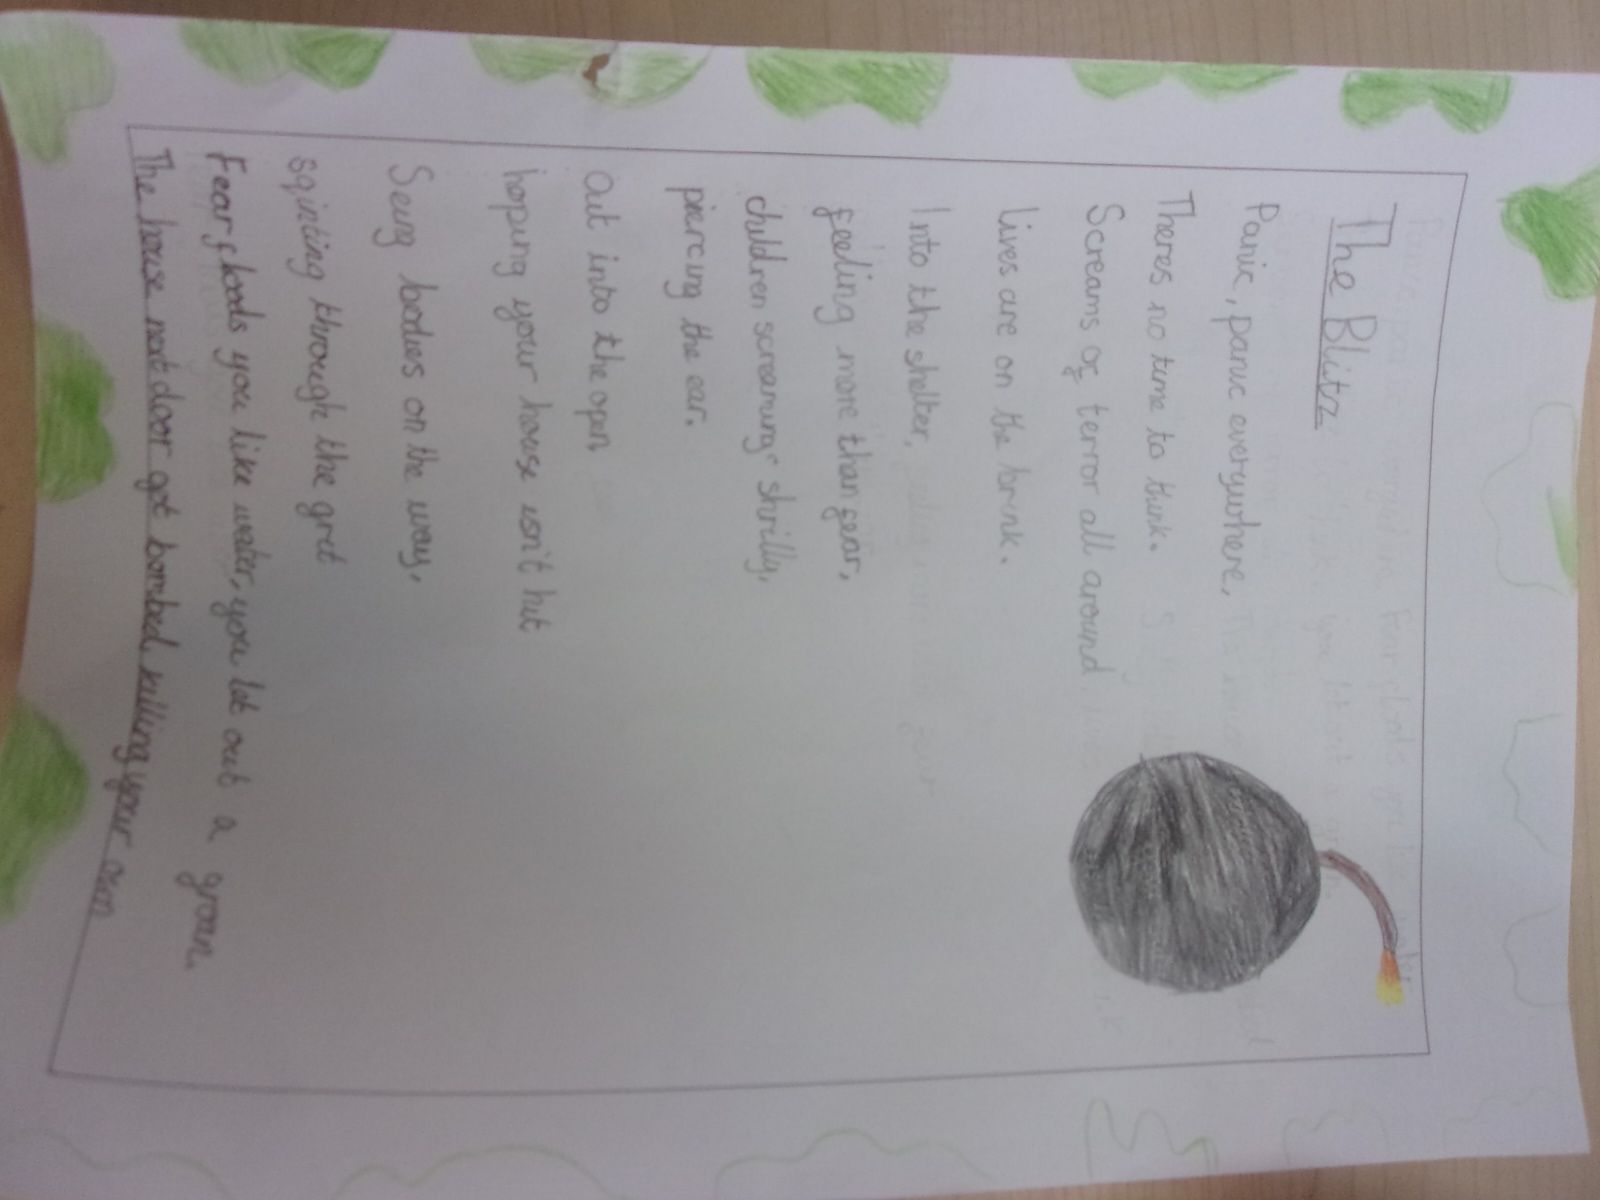 The Blitz
Panic, panic everywhere,
Theres no time to think.
Screams of terror all around
lives are on the brink.
Into the shelter,
feeling more than fear,
children screaming shrilly,
piercing the ear.
Out into the open
hoping your house isn't hit
Seing bodies on the way,
sqinting through the grit
Fear floods you like water, you let out a groan.
The house next door got bombed, killing your own